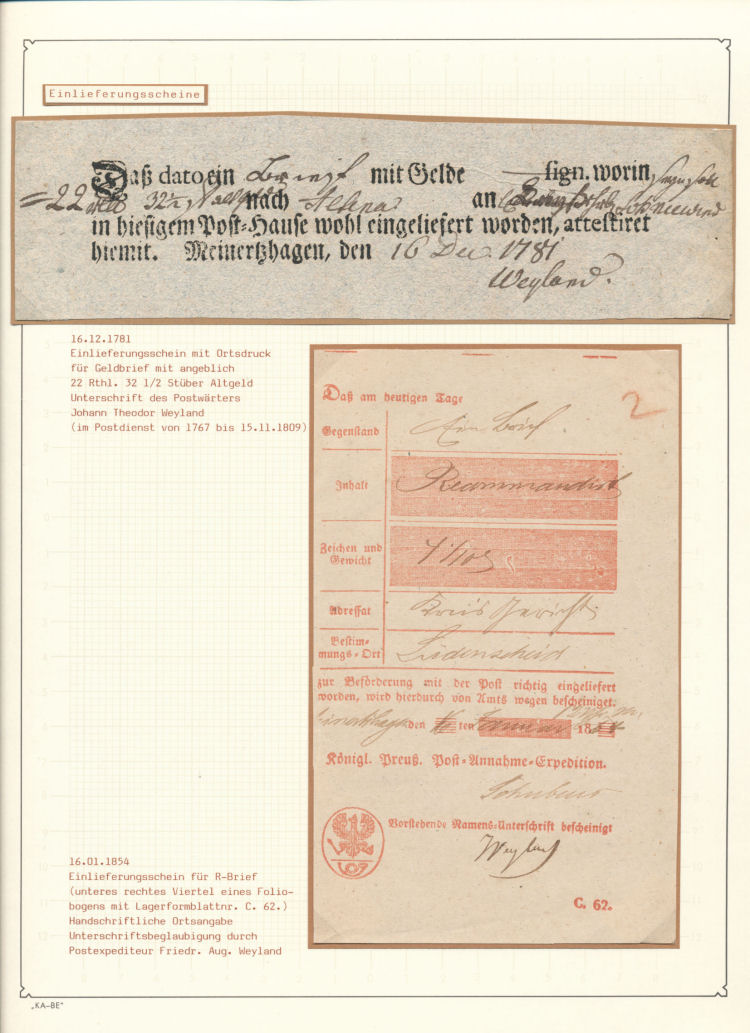 Einlieferungsscheine
Daß dato ein Brieff mit Gelde sign. worin
22 nach Altena an
in hiesigem Post-Hause wohl eingeliefert worden, attestiret
hiemit. Meinertzhagen, den 16 Dec. 1781
Weyland.
16.12.1781
Einlieferungsschein mit Ortsdruck
für Geldbrief mit angeblich
22 Rthl. 32 1/2 Stüber Altgeld
Unterschrift des Postwärters
Johann Theodor Weyland
(im Postdienst von 1767 bis 15.11.1809)
2
Daß am heutigen Tage
Gegenstand Ein Brief.
Inhalt Recommandirt
Zeichen und
Gewicht
Adressat Kreis Gericht
Bestim-
mungs-Ort Lüdenscheid
zur Beförderung mit der Post richtig eingeliefert
worden, wird hierdurch von Amts wegen bescheinigt.
den 16 ten Januar 1854
Königl. Preuß. Post-Annahme-Expedition.
Vorstehende Namens-Unterschrift bescheinigt
Weyland
C. 62.
16.01.1854
Einlieferungsschein für R-Brief
(unteres rechtes Viertel eines Folio-
bogens mit Lagerformblattnr. C. 62.)
Handschriftliche Ortsangabe
Unterschriftsbeglaubigung durch
Postexpediteur Friedr. Aug. Weyland
„KA-BE"